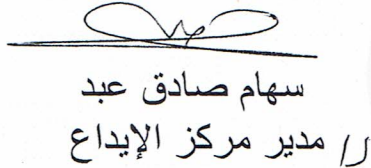 سهام صادق عبد
مدير مركز الإيداع